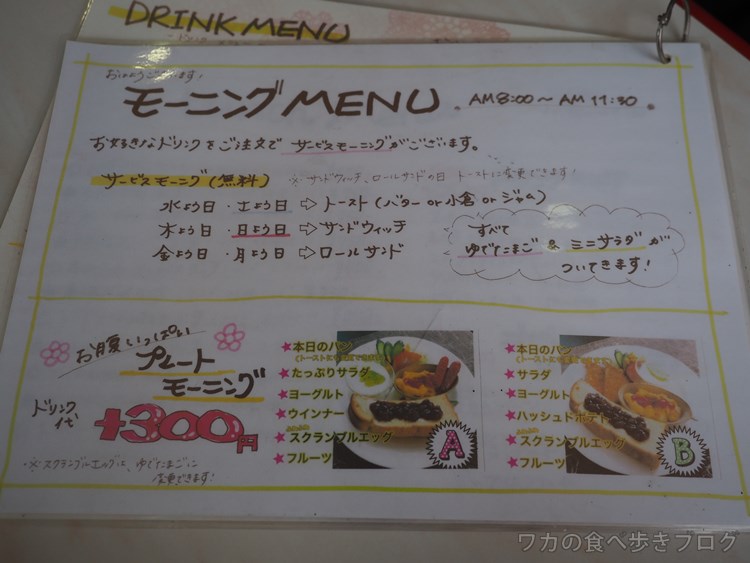 DRINK MENU
おはようございます!
モーニングMENU 。AM8:00～AM11:30。
お好きなドリンクをご注文でサービスモーニングがございます。
サービスモーニング(無料) ※サンドウィッチ、ロールサンドの日 トーストに変更できます!
水よう日・土よう日⇨トースト(バター or 小倉 or ジャム)
木よう日・日よう日⇨サンドウィッチ
金よう日・月よう日⇨ロールサンド
すべて
ゆでたまご & ミニサラダが
ついてきます!
お腹いっぱい
プレート
モーニング
ドリンク代
+300円
※スクランブルエッグは、ゆでたまごに
変更できます!
★本日のパン
★たっぷりサラダ
★ヨーグルト
★ウインナー
★スクランブルエッグ
★フルーツ
A
★本日のパン
★サラダ
★ヨーグルト
★ハッシュドポテト
★スクランブルエッグ
★フルーツ
B
ワカの食べ歩きブログ